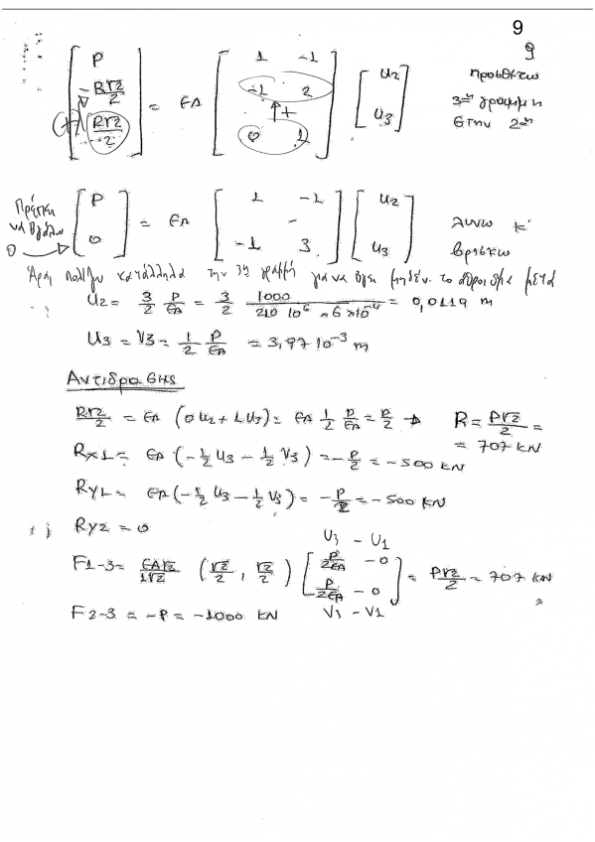 9
9
[P; -R√2/2; R√2/2] = EA [1 -1; -1 2; 0 1] [u2; u3]
(+)
+
προσθέτω
3η γραμμή
στην 2η
Πρέπει
να βγάλω
0
[P; 0] = EA [1 -1; -1 3] [u2; u3]
λύνω κ'
βρίσκω
Άρα πολ/ζω κατάλληλα την 3η γραμμή για να βγει μηδέν το άθροισμα μετά
U2 = 3/2 P/EA = 3/2 1000/(210 10^6 * 6*10^-4) = 0,0119 m
U3 = V3 = 1/2 P/EA = 3,97 10^-3 m
Αντιδράσεις
R√2/2 = EA (0U2 + 1U3) = EA 1/2 P/EA = P/2 → R = P√2/2 =
= 707 kN
Rx1 = EA (-1/2 U3 - 1/2 V3) = -P/2 = -500 kN
Ry1 = EA (-1/2 U3 - 1/2 V3) = -P/2 = -500 kN
Ry2 = 0
U3 - U1
F1-3 = EA√2/1√2 (√2/2, √2/2) [P/2EA - 0; P/2EA - 0] = P√2/2 = 707 kN
V3 - V1
F2-3 = -P = -1000 kN